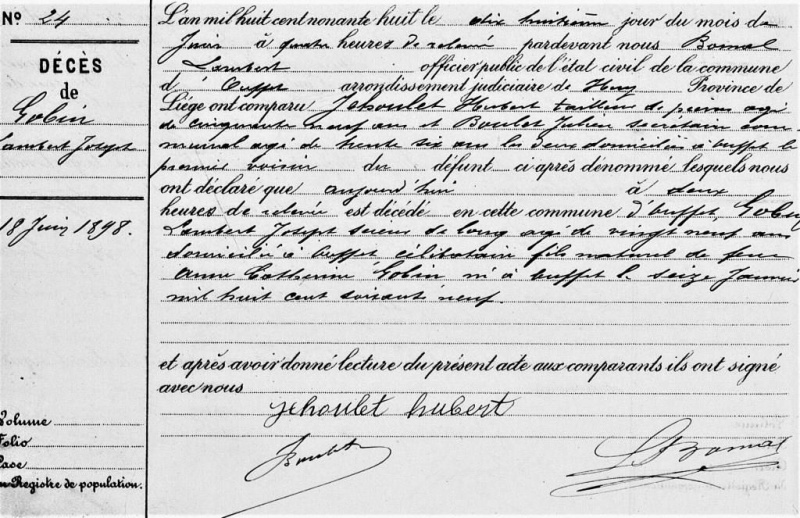 Nº 24
DÉCÈS
de
Gobin
Lambert Joseph
18 Juin 1898.
Volume
Folio
Case
Registre de population.
L'an mil huit cent nonante huit le dix huitième jour du mois de
Juin à quatre heures de relevée pardevant nous Bomal
Lambert officier public de l'état civil de la commune
d'Ouffet arrondissement judiciaire de Huy Province de
Liége ont comparu Jehoulet Hubert tailleur de pierres agé
de cinquante neuf ans et Boulet Julien secrétaire com
munal agé de trente six ans les deux domiciliés à Ouffet le
premier voisin du défunt ci-après dénommé, lesquels nous
ont déclaré que aujourd'hui à deux
heures de relevée est décédé en cette commune d'Ouffet, Gobin
Lambert Joseph scieur de long agé de vingt neuf ans
domicilié à Ouffet célibataire fils naturel de feue
Anne Catherine Gobin né à Ouffet le seize Janvier
mil huit cent soixante neuf.
et après avoir donné lecture du présent acte aux comparants ils ont signé
avec nous
Jehoulet hubert
Boulet
L Bomal